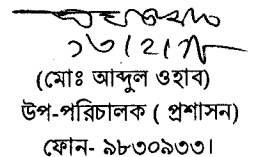 ১৩/২/
(মোঃ আব্দুল ওহাব)
উপ-পরিচালক ( প্রশাসন)
ফোন- ৯৮৩০৯৩৩।